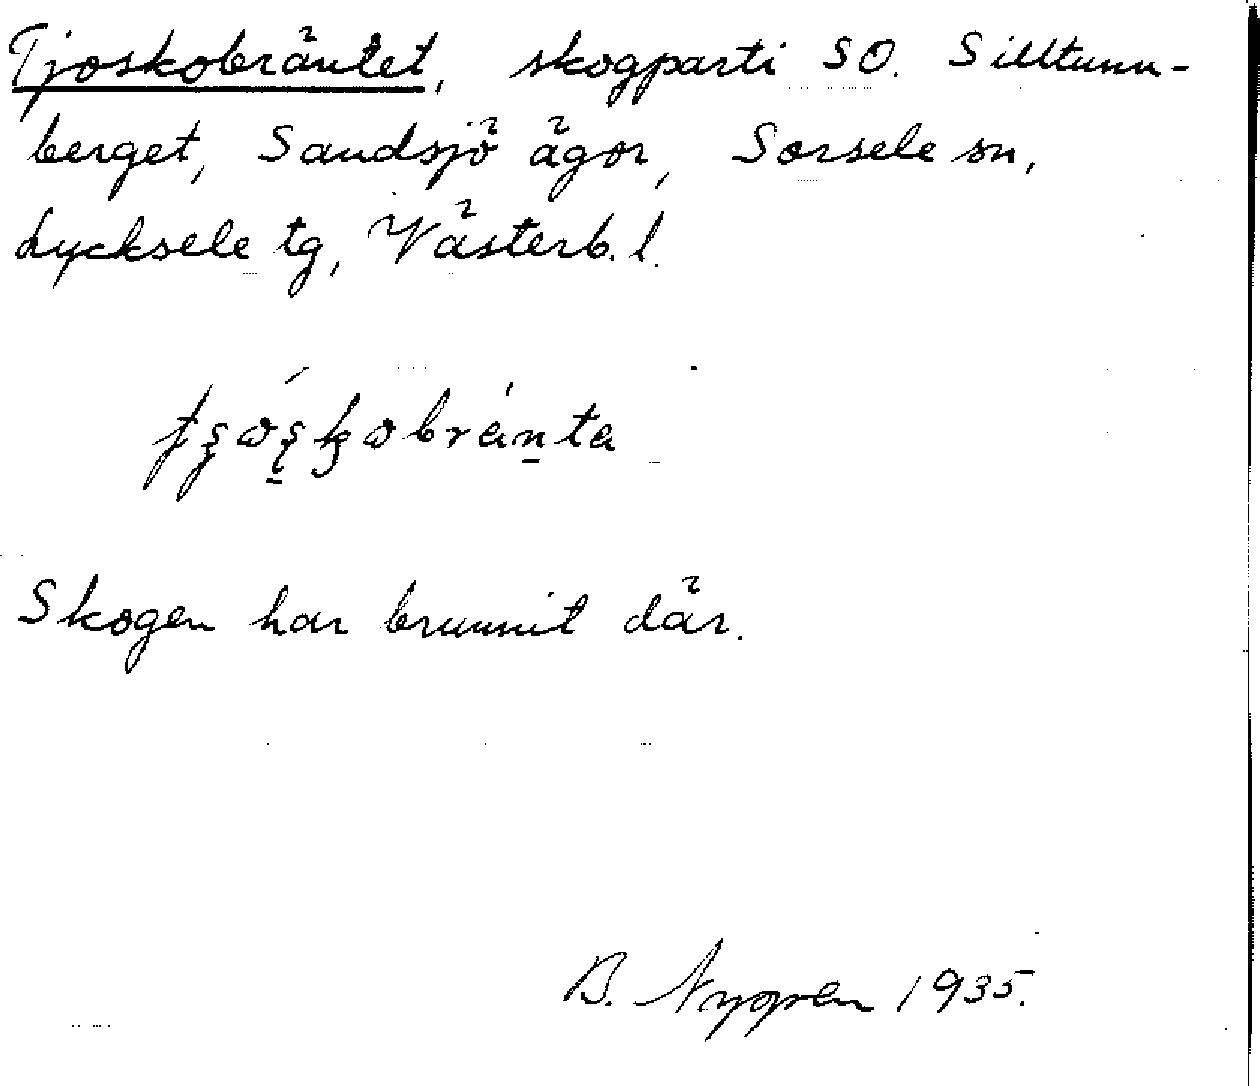 Tjoskobräntet, skogparti SO. Silltunn-
berget, Sandsjö ägor, Sorsele sn,
Lycksele tg, Västerb. l.
Skogen har brunnit där.
B. 1935.